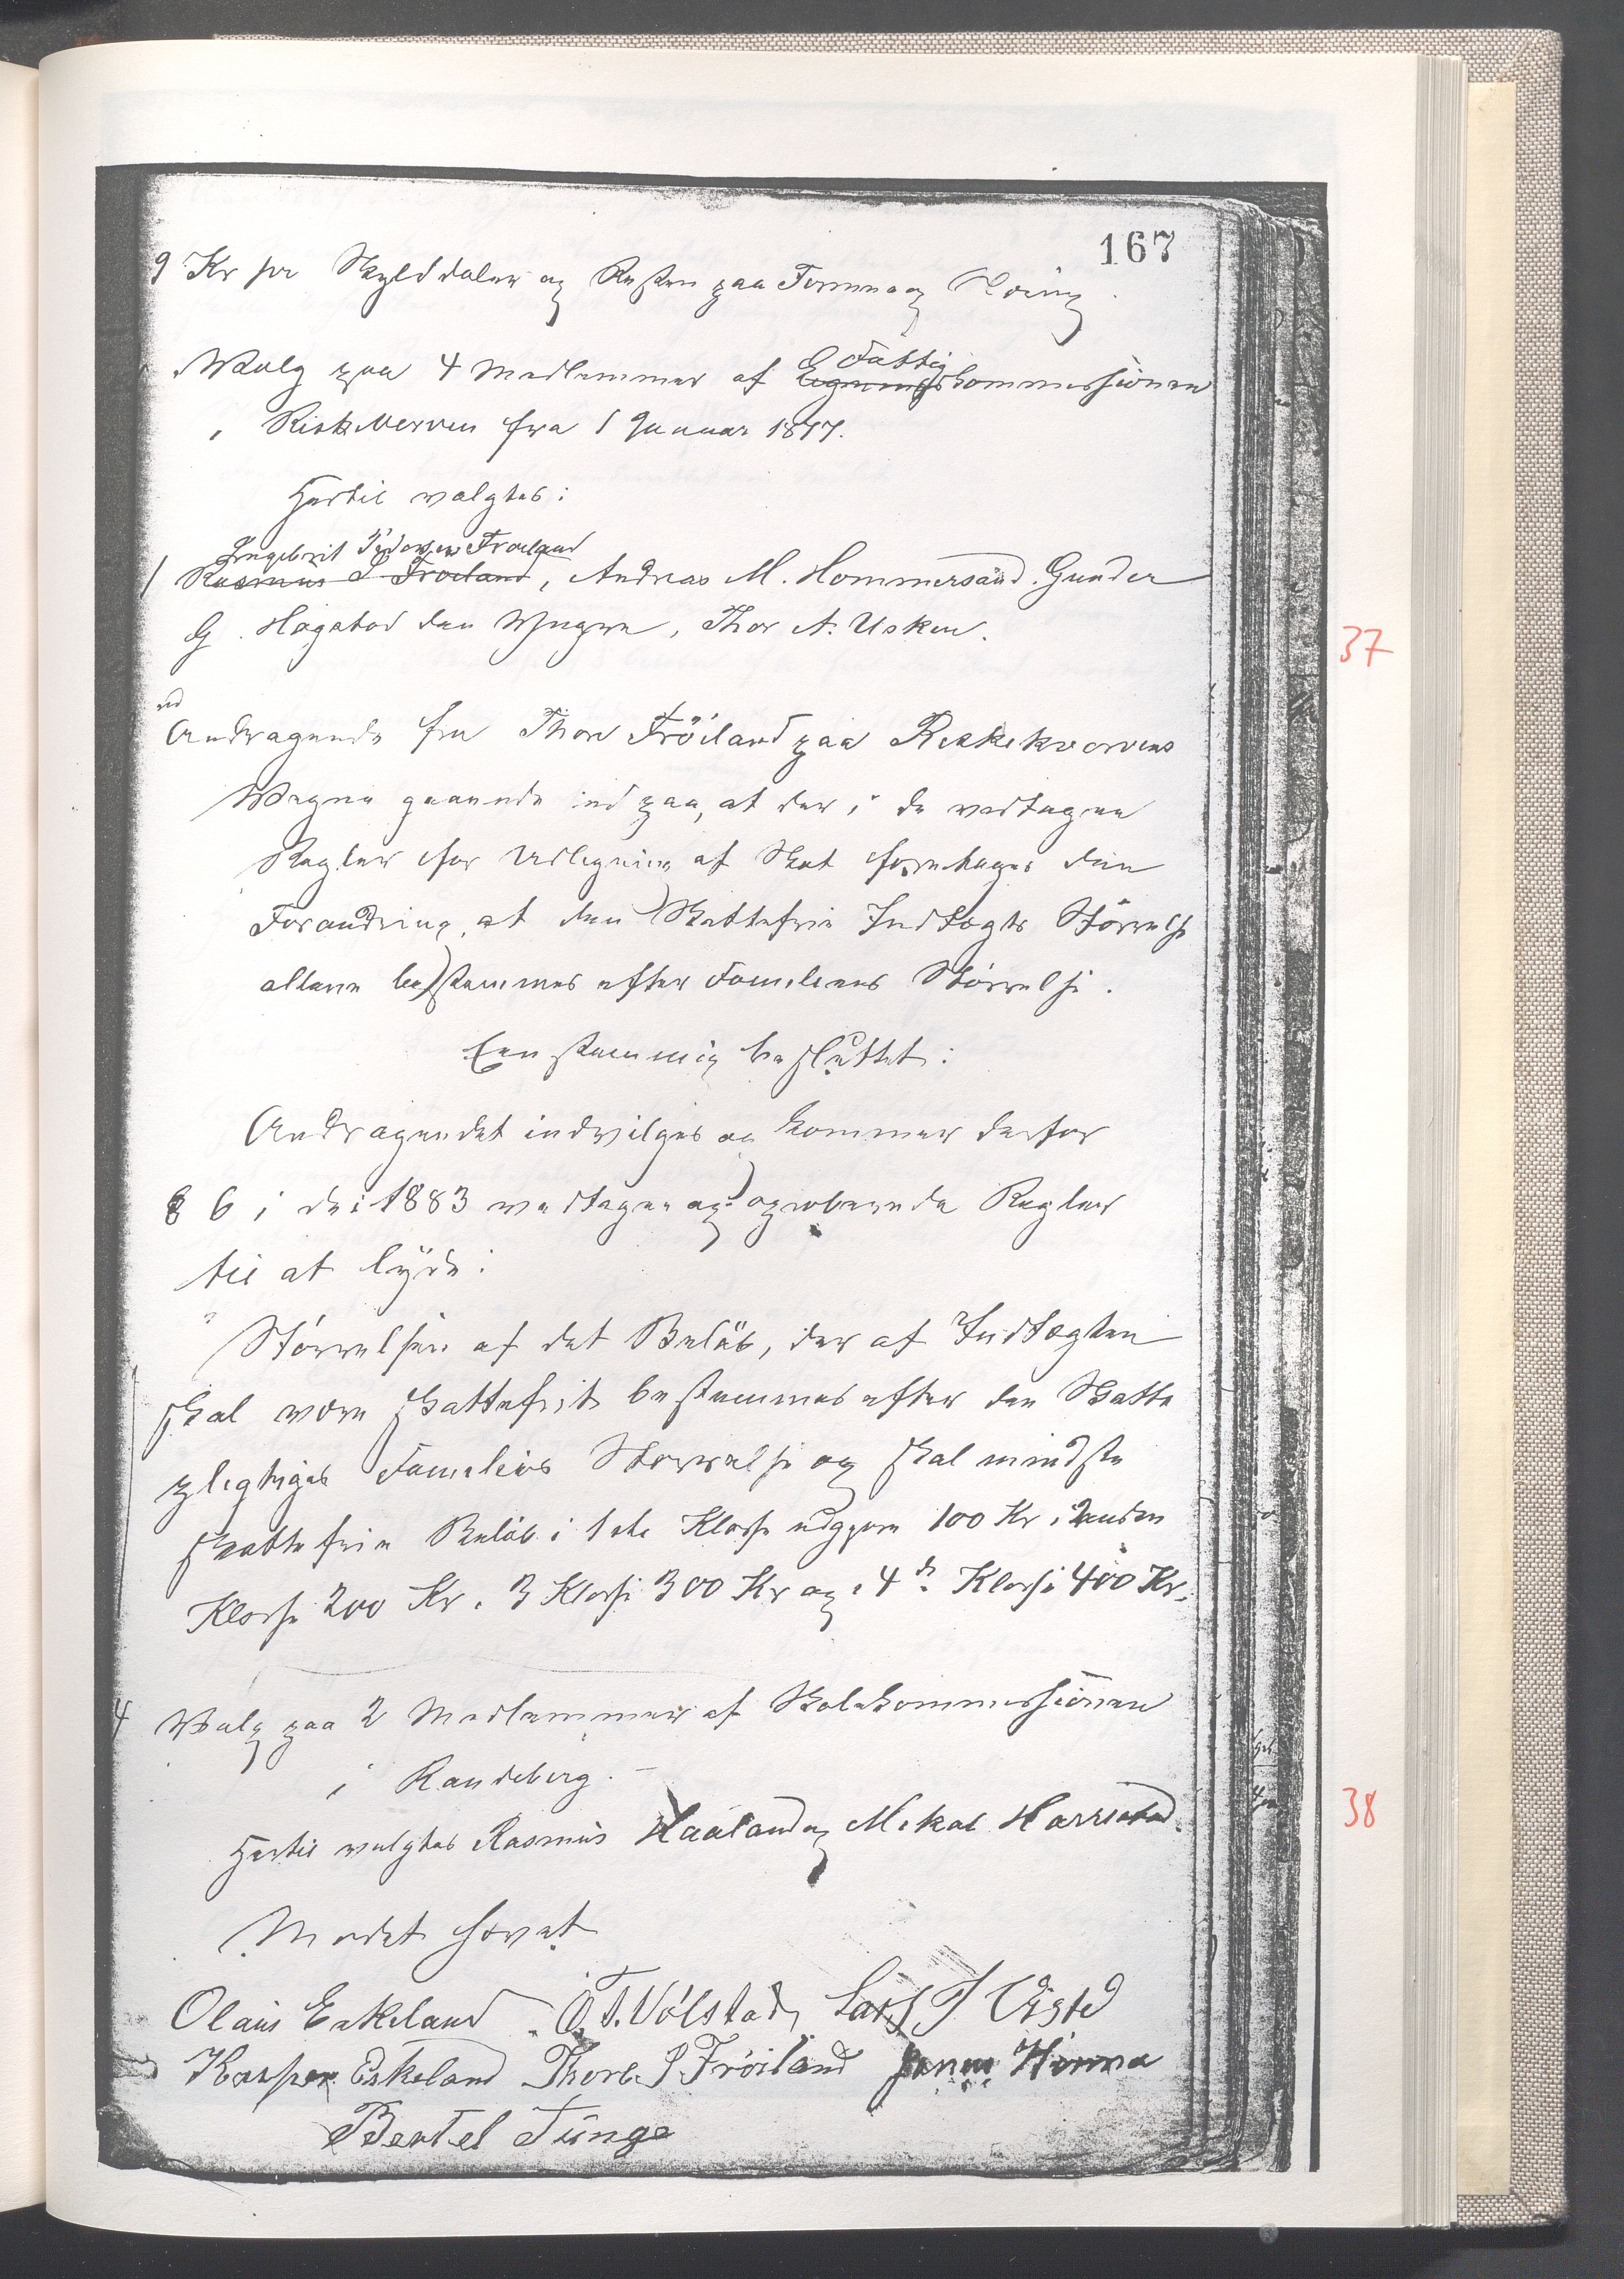 167
9 Kr pr Skylddaler og Resten paa Formue og Næring.
Valg paa 4 Medlemmer af Ligningskommissionen
Fattig
i Riskekverven fra 1 Januar 1887.
Hertil valgtes:
Ingebrit Pedersen Froeland
1 Rasmus S Froeland, Andreas M. Hommersand. Gunder
G. Hogstad den Yngre, Thor A. Usken.
37
Andragende fra Thore Fröiland paa Riskekvervens
Vegne gaaende ind paa, at der i de vedtagne
Regler for Udligning af Skat foretages den
Forandring, at den Skattefrie Indtægts Störrelse
allene bestemmes efter Familiens Störrelse.
Eenstemmig besluttet:
Andragendet indvilges og kommer derfor
§ 6 i de i 1883 vedtagne og approberede Regler
til at lyde:
"Störrelsen af det Belöb, der af Indtægten
skal være skattefrit bestemmes efter den Skatte
pligtiges Families Störrelse og skal mindste
skattefrie Belöb i 1ste Klasse udgjøre 100 Kr, i 2anden
Klasse 200 Kr. 3 Klasse 300 Kr og i 4de Klasse 400 Kr.
4 Valg paa 2 Medlemmer af Skolekommissionen
i Randeberg.
38
Hertil valgtes Rasmus Haaland og Mikal Harristad.
Mødet hævet
Olaus Eskeland O. T. Völstad, Lars T Viste
Kasper Eskeland Thore S Fröiland Hinna
Bertel Tunge